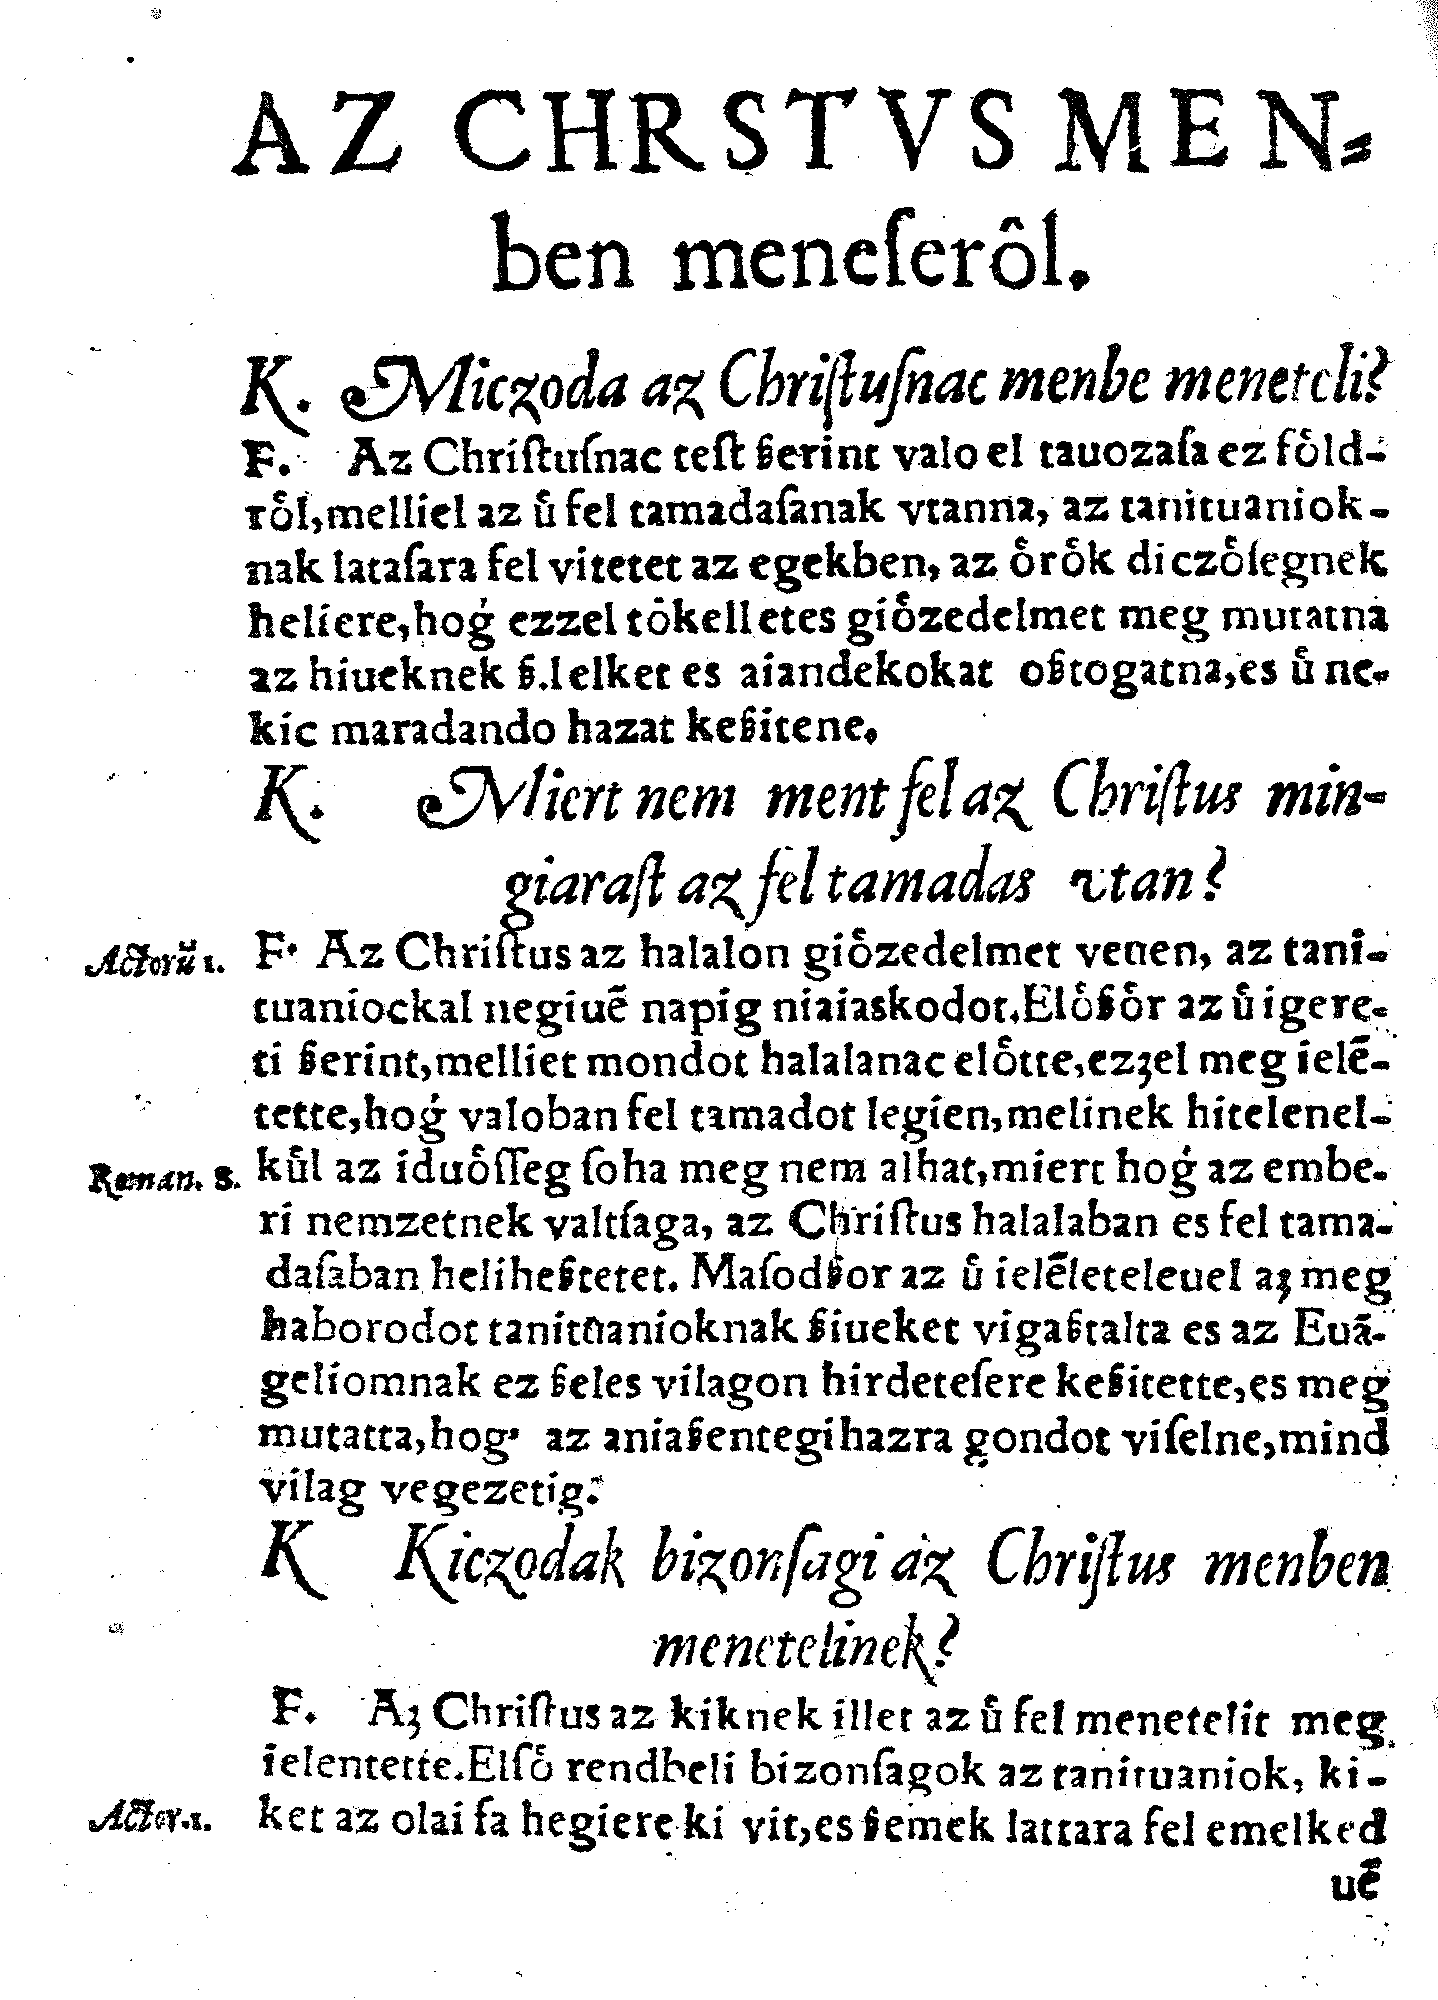 AZ CHRSTVS MEN⸗
ben meneſerôl.
K. Miczoda az Chriſtuſnac menbe meneteli?
F. Az Chriſtuſnac teſt ßerint valo el tauozaſa ez fo̊ld-
ro̊l, melliel az ů fel tamadaſanak vtanna, az tanituaniok-
nak lataſara fel vitetet az egekben, az o̊ro̊k diczo̊ſegnek
heliere, hoǵ ezzel tôkelletes gio̊zedelmet meg mutatna
az hiueknek ß. lelket es aiandekokat oßtogatna, es ů ne-
kic maradando hazat keßitene.
K. Miert nem ment fel az Chriſtus min-
giaraſt az fel tamadas vtan?
Actorū 1. F. Az Chriſtus az halalon gio̊zedelmet venen, az tani-
tuaniockal negiuē napig niaiaskodot. Elo̊ßo̊r az ů igere-
ti ßerint, melliet mondot halalanac elo̊tte, ezʒel meg ielē-
tette, hoǵ valoban fel tamadot legien, melinek hitelenel-
Roman. 8. kůl az iduo̊ſſeg ſoha meg nem alhat, miert hoǵ az embe-
ri nemzetnek valtſaga, az Chriſtus halalaban es fel tama-
daſaban heliheßtetet. Maſodßor az ů ielēleteleuel aʒ meg
haborodot tanitūanioknak ßiueket vigaßtalta es az Euā-
geliomnak ez ßeles vilagon hirdeteſere keßitette, es meg
mutatta, hog' az aniaßentegihazra gondot viſelne, mind
vilag vegezetig.
K Kiczodak bizonſagi az Chriſtus menben
menetelinek?
F. Aʒ Chriſtus az kiknek illet az ů fel menetelit meg
ielentette. Elſo̊ rendbeli bizonſagok az tanituaniok, ki-
Actor. 1. ket az olai fa hegiere ki vit, es ßemek lattara fel emelked
uē